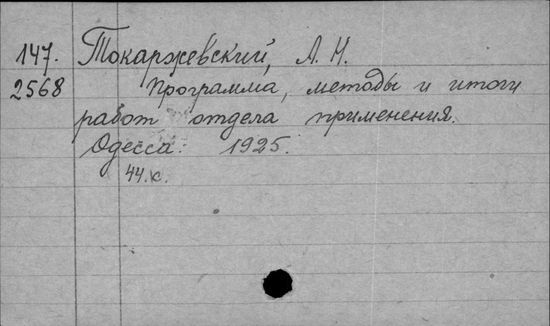 147. Токаржевский, Л. Н.
2568 Программа, методы и итоги
работ отдела применения.
Одесса. 1925.
44.с.